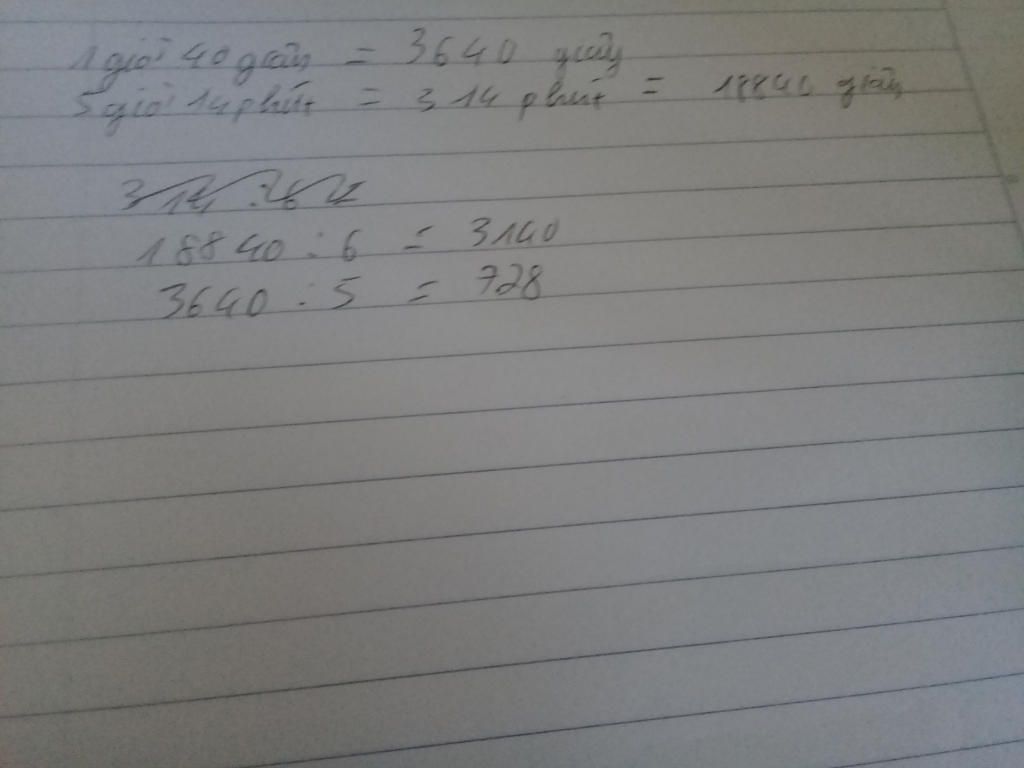 1 giờ 40 giây = 3640 giây
5 giờ 14 phút = 314 phút = 18840 giây
18840 : 6 = 3140
3640 : 5 = 728